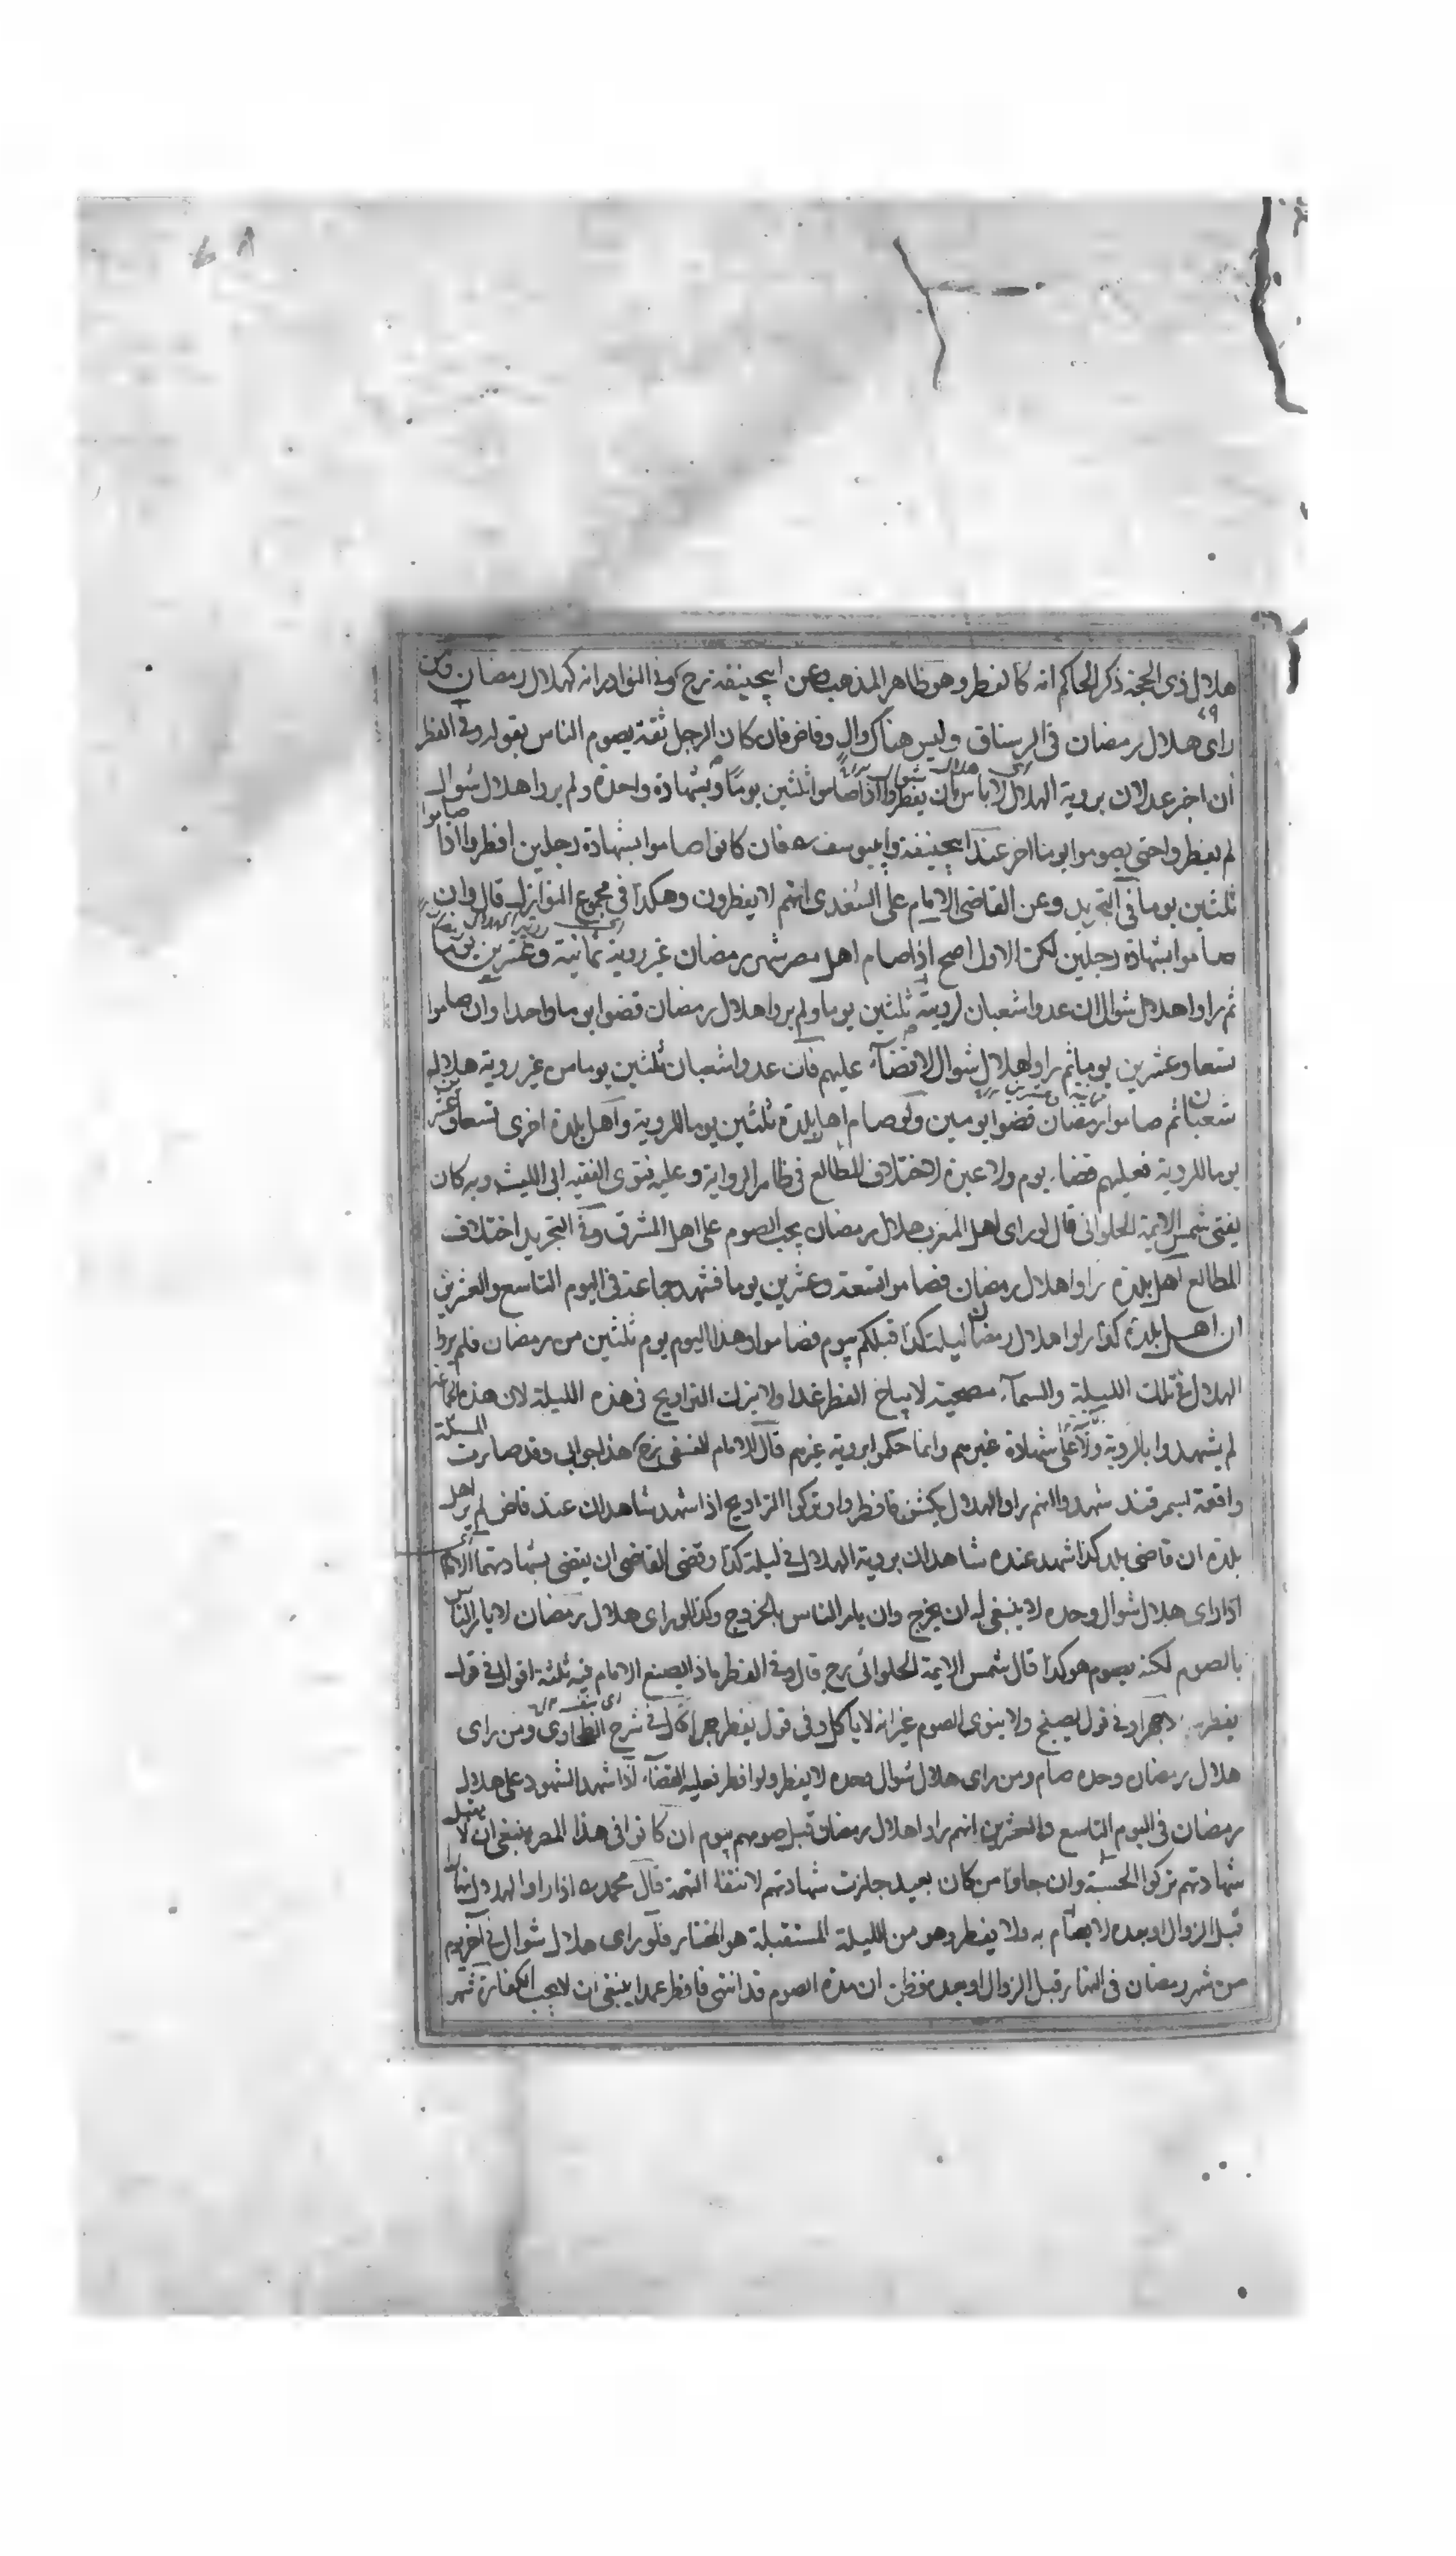 هلال ذى الحجة ذكر الحاكم انه كالفطر وهو ظاهر المذهب وعن ابيحنيفه رح وفى النوادر انه كهلال رمضان ومن
راى هلال رمضان فى الرستاق وليس هناك وال وقاض فان كان الرجل ثقة يصوم الناس بقوله وفى الفطر
ان اخبر عدلان بروية الهلال لاباس بان يفطروا اذا صاموا ثلثين يوما وبشهادة واحدة ولم يروا هلال شوال
لم يفطروا حتى يصوموا يوما اخر عند ابيحنيفة وابيوسف فان كانوا صاموا بشهادة رجلين افطروا اذا صاموا
ثلثين يوما فى التجريد وعن القاضى الامام على السغدى انهم لا يفطرون وهكذا فى مجموع النوازل قال وان
صاموا بشهادة رجلين لكن الاول اصح اذا صام اهل مصر شهر رمضان غير روية ثمانية وعشرين يوما
ثم راوا هلال شوال ان عدوا شعبان لروية ثلثين يوما ولم يروا هلال رمضان قضوا يوما واحدا وان صاموا
تسعا وعشرين يوما ثم راوا هلال شوال لا قضآء عليهم فان عدوا شعبان ثلثين يوما من غير روية هلال
شعبان ثم صاموا رمضان قضوا يومين ولو صام اهل بلدة ثلثين يوما للروية واهل بلدة اخرى تسعا وعشرين
يوما للروية فعليهم قضاء يوم ولا عبرة لاختلاف المطالع فى ظاهر الرواية وعليه فتوى الفقيه ابى الليث وبه كان
يفتى شمس الايمة الحلوانى قال لو راى اهل المغرب هلال رمضان يجب الصوم على اهل المشرق وفى التجريد اختلاف
المطالع اهل بلدة راوا هلال رمضان فصاموا تسعة وعشرين يوما فشهد جماعة فى اليوم التاسع والعشرين
ان اهل بلدة كذا راوا هلال رمضان ليلة كذا قبلكم بيوم فصاموا وهذا اليوم يوم ثلثين من رمضان فلم يروا
الهلال فى تلك الليلة والسمآء مصحية لا يباح الفطر غدا ولا يترك التراويح فى هذه الليلة لان هذه الجماعة
لم يشهدوا بالروية ولا على شهادة غيرهم وانما حكموا بروية غيرهم قال الامام النسفى رح هذا جوابى وقد صارت المسئلة
واقعة بسمرقند شهدوا انهم راوا الهلال بكش فافطروا وتركوا التراويح اذا شهد شاهدان عند قاض لم ير اهل
بلدة ان قاضى بلد كذا شهد عنده شاهدان بروية الهلال فى ليلة كذا وقضى القاضى ان يقضى بشهادتهما الامام
اذا راى هلال شوال وحده لا ينبغى له ان يخرج وان يامر الناس بالخروج وكذا لو راى هلال رمضان لا يامر الناس
بالصوم لكنه يصوم هو كذا قال شمس الايمة الحلوانى رح قال وفى الفطر ماذا يصنع الامام فيه ثلثة اقوال فى قول
يفطر لا جهرا وفى قول يصبح ولا ينوى الصوم غير انه لا ياكل وفى قول يفطر جهرا قال فى شرح الطحاوى ومن راى
هلال رمضان وحده صام ومن راى هلال شوال وحده لا يفطر ولو افطر فعليه القضآء اذا شهد الشهود على هلال
رمضان فى اليوم التاسع والعشرين انهم راوا هلال رمضان قبل صومهم بيوم ان كانوا فى هذا المصر ينبغى ان لا يقبل
شهادتهم تركوا الحسبة وان جاوا من كان بعيد جازت شهادتهم لانتفاء التهمة قال محمد اذا راوا الهلال نهارا
قبل الزوال او بعده لا يصام به ولا يفطر وهو من الليلة المستقبلة هو المختار فلو راى هلال شوال فى آخر يوم
من شهر رمضان فى النهار قبل الزوال او بعده فظن ان مدة الصوم قد انتهى فافطر عمدا ينبغى ان لا يجب الكفارة شهر